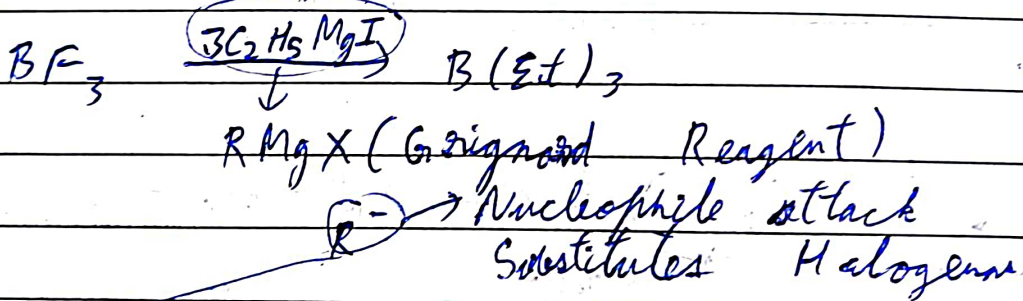 BF₃ 3C₂H₅MgI B(Et)₃
RMgX (Grignard Reagent)
R⁻ → Nucleophile attack
Substitutes Halogens